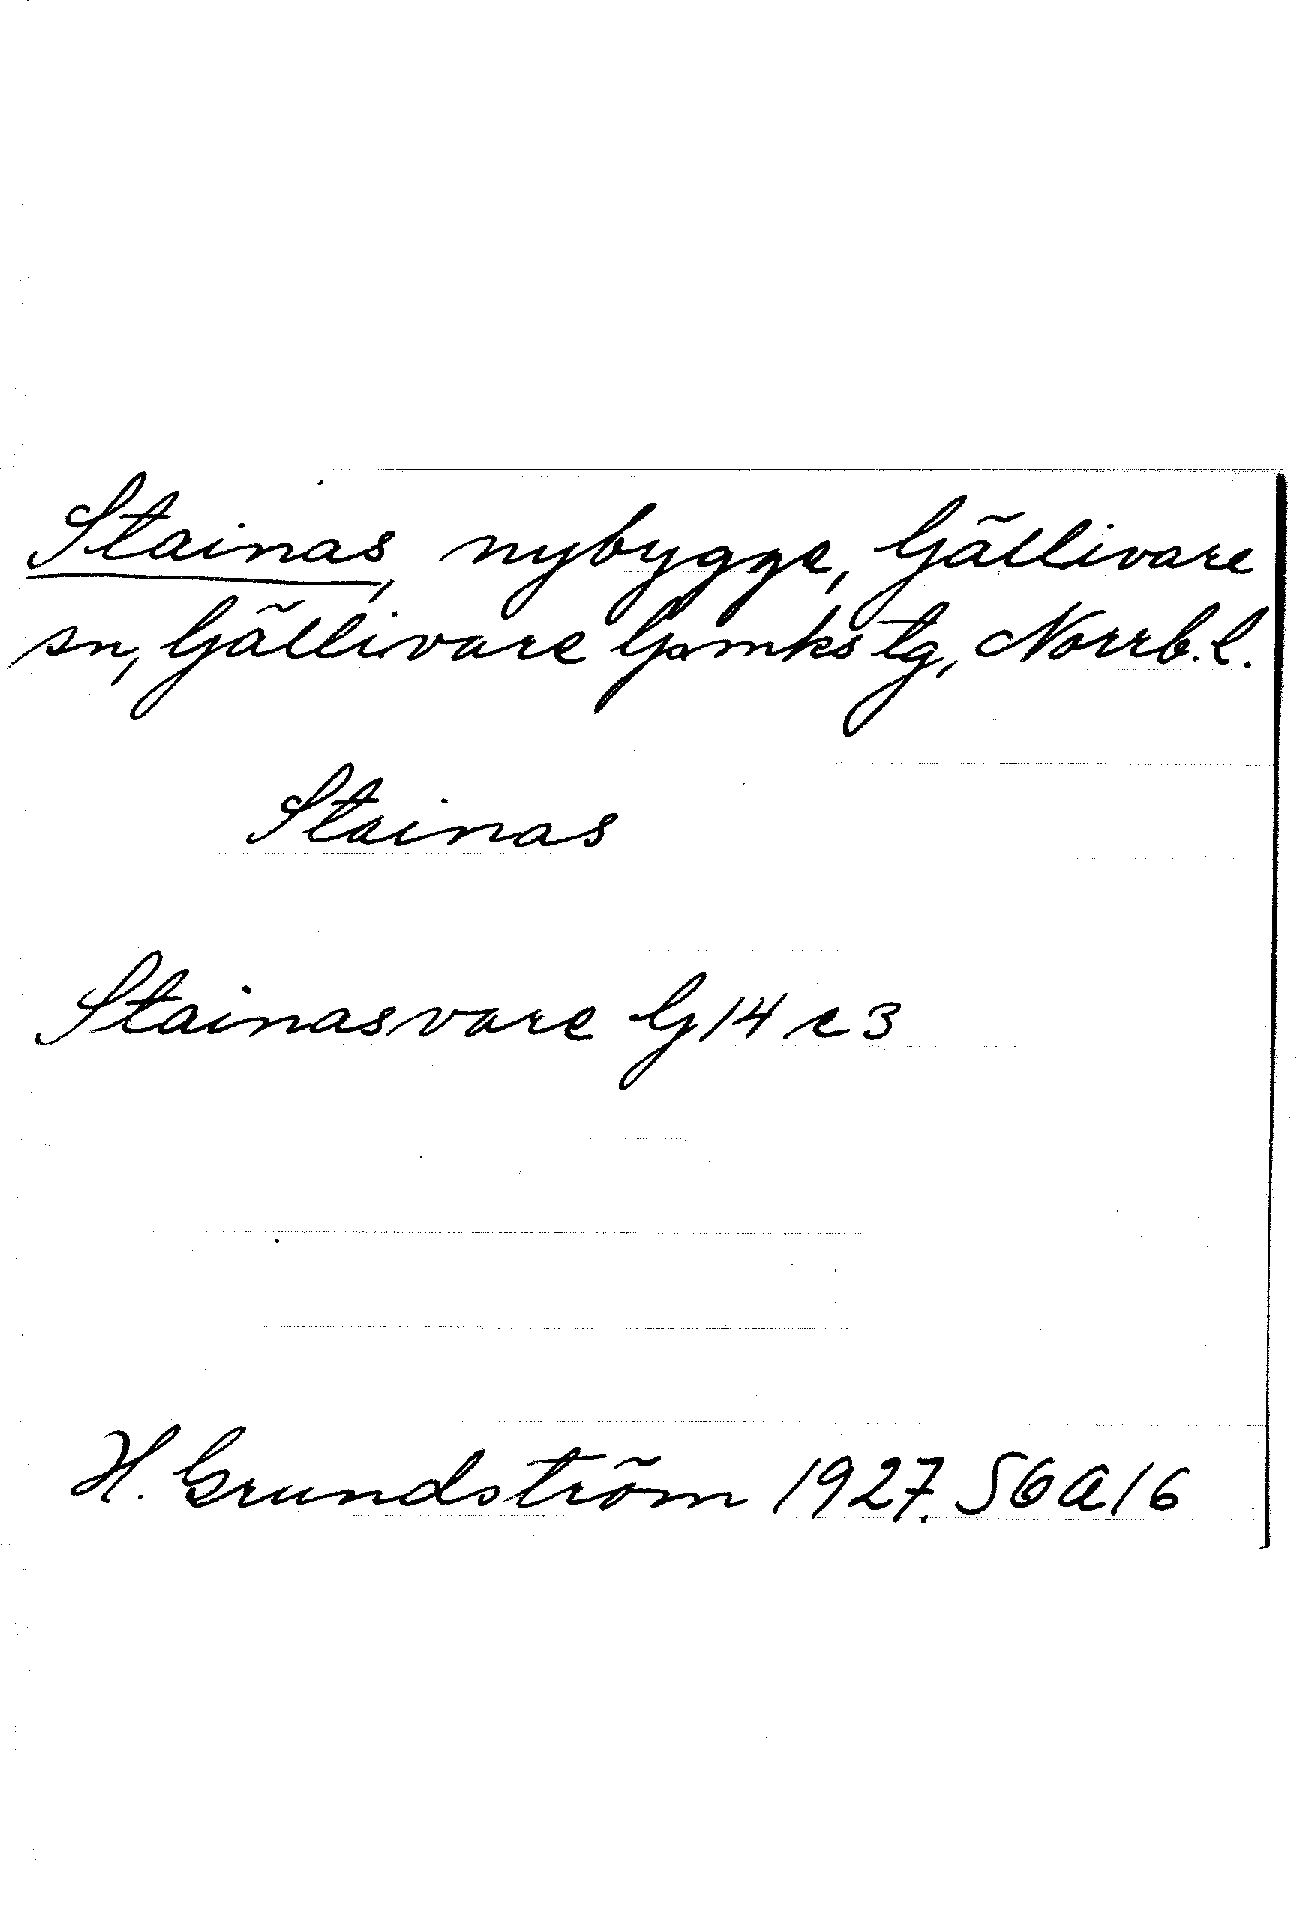 Stainas, nybygge, Gällivare
sn, Gällivare lpmks tg, Norrb. l.
Stainas
Stainasvare G 14 c 3
H. Grundström 1927. S6a16